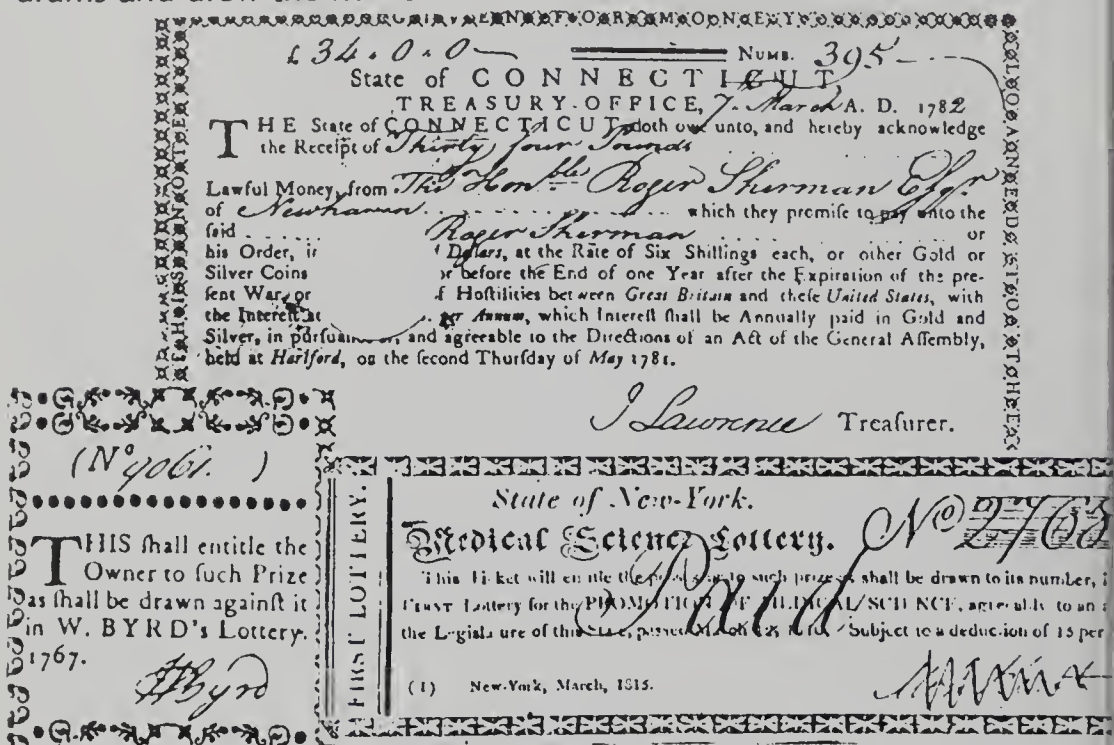 £34.0.0 NUMB. 395
State of CONNECTICUT
TREASURY-OFFICE, 7. March A. D. 1782
THE State of CONNECTICUT doth owe unto, and hereby acknowledge
the Receipt of Thirty four Pounds
Lawful Money, from The Honble Roger Sherman Esqr
of Newhaven which they promiſe to pay unto the
ſaid Roger Sherman or
his Order, in Dollars, at the Rate of Six Shillings each, or other Gold or
Silver Coins or before the End of one Year after the Expiration of the pre-
ſent War, or of Hoſtilities between Great Britain and theſe United States, with
the Intereſt at per Annum, which Intereſt ſhall be Annually paid in Gold and
Silver, in and agreeable to the Directions of an Act of the General Aſſembly,
held at Hartford, on the ſecond Thurſday of May 1781.
J Lawrence Treaſurer.
(No 9061. )
THIS ſhall entitle the
Owner to ſuch Prize
as ſhall be drawn againſt it
in W. BYRD's Lottery.
1767.
WByrd
FIRST LOTTERY.
State of New-York.
Medical Science Lottery. No 2763
Paid
This Ticket will entitle the to such prize as shall be drawn to its number,
FIRST Lottery for the PROMOTION OF MEDICAL SCIENCE, agreeably to an
the Legislature of this State, Subject to a deduction of 15 per
(1) New-York, March, 1815.